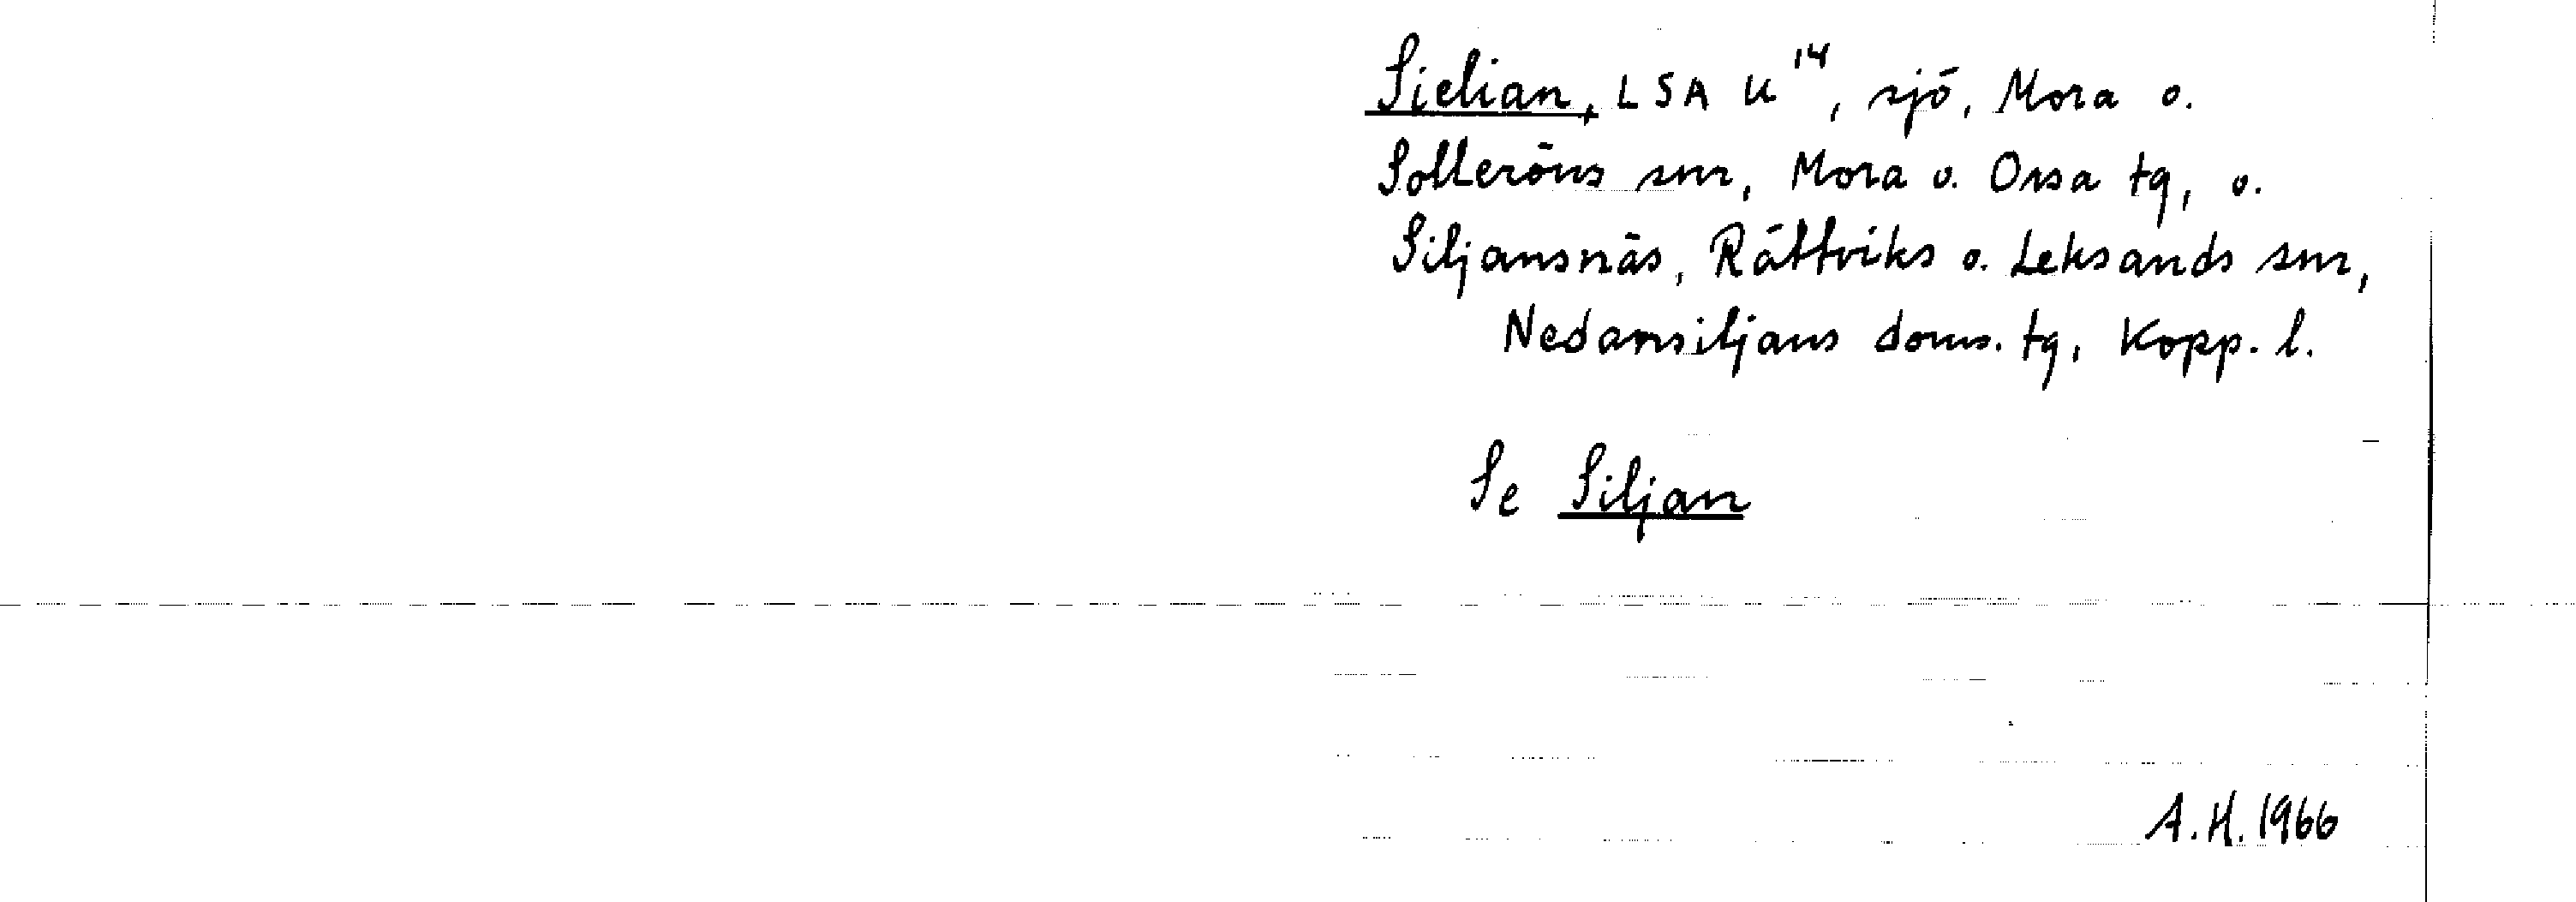 Sielian, LSA U¹⁴, sjö, Mora o.
Solleröns snr, Mora o. Orsa tg, o.
Siljansnäs, Rättviks o. Leksands snr,
Nedansiljans doms. tg, Kopp. l.
Se Siljan
A.H. 1966